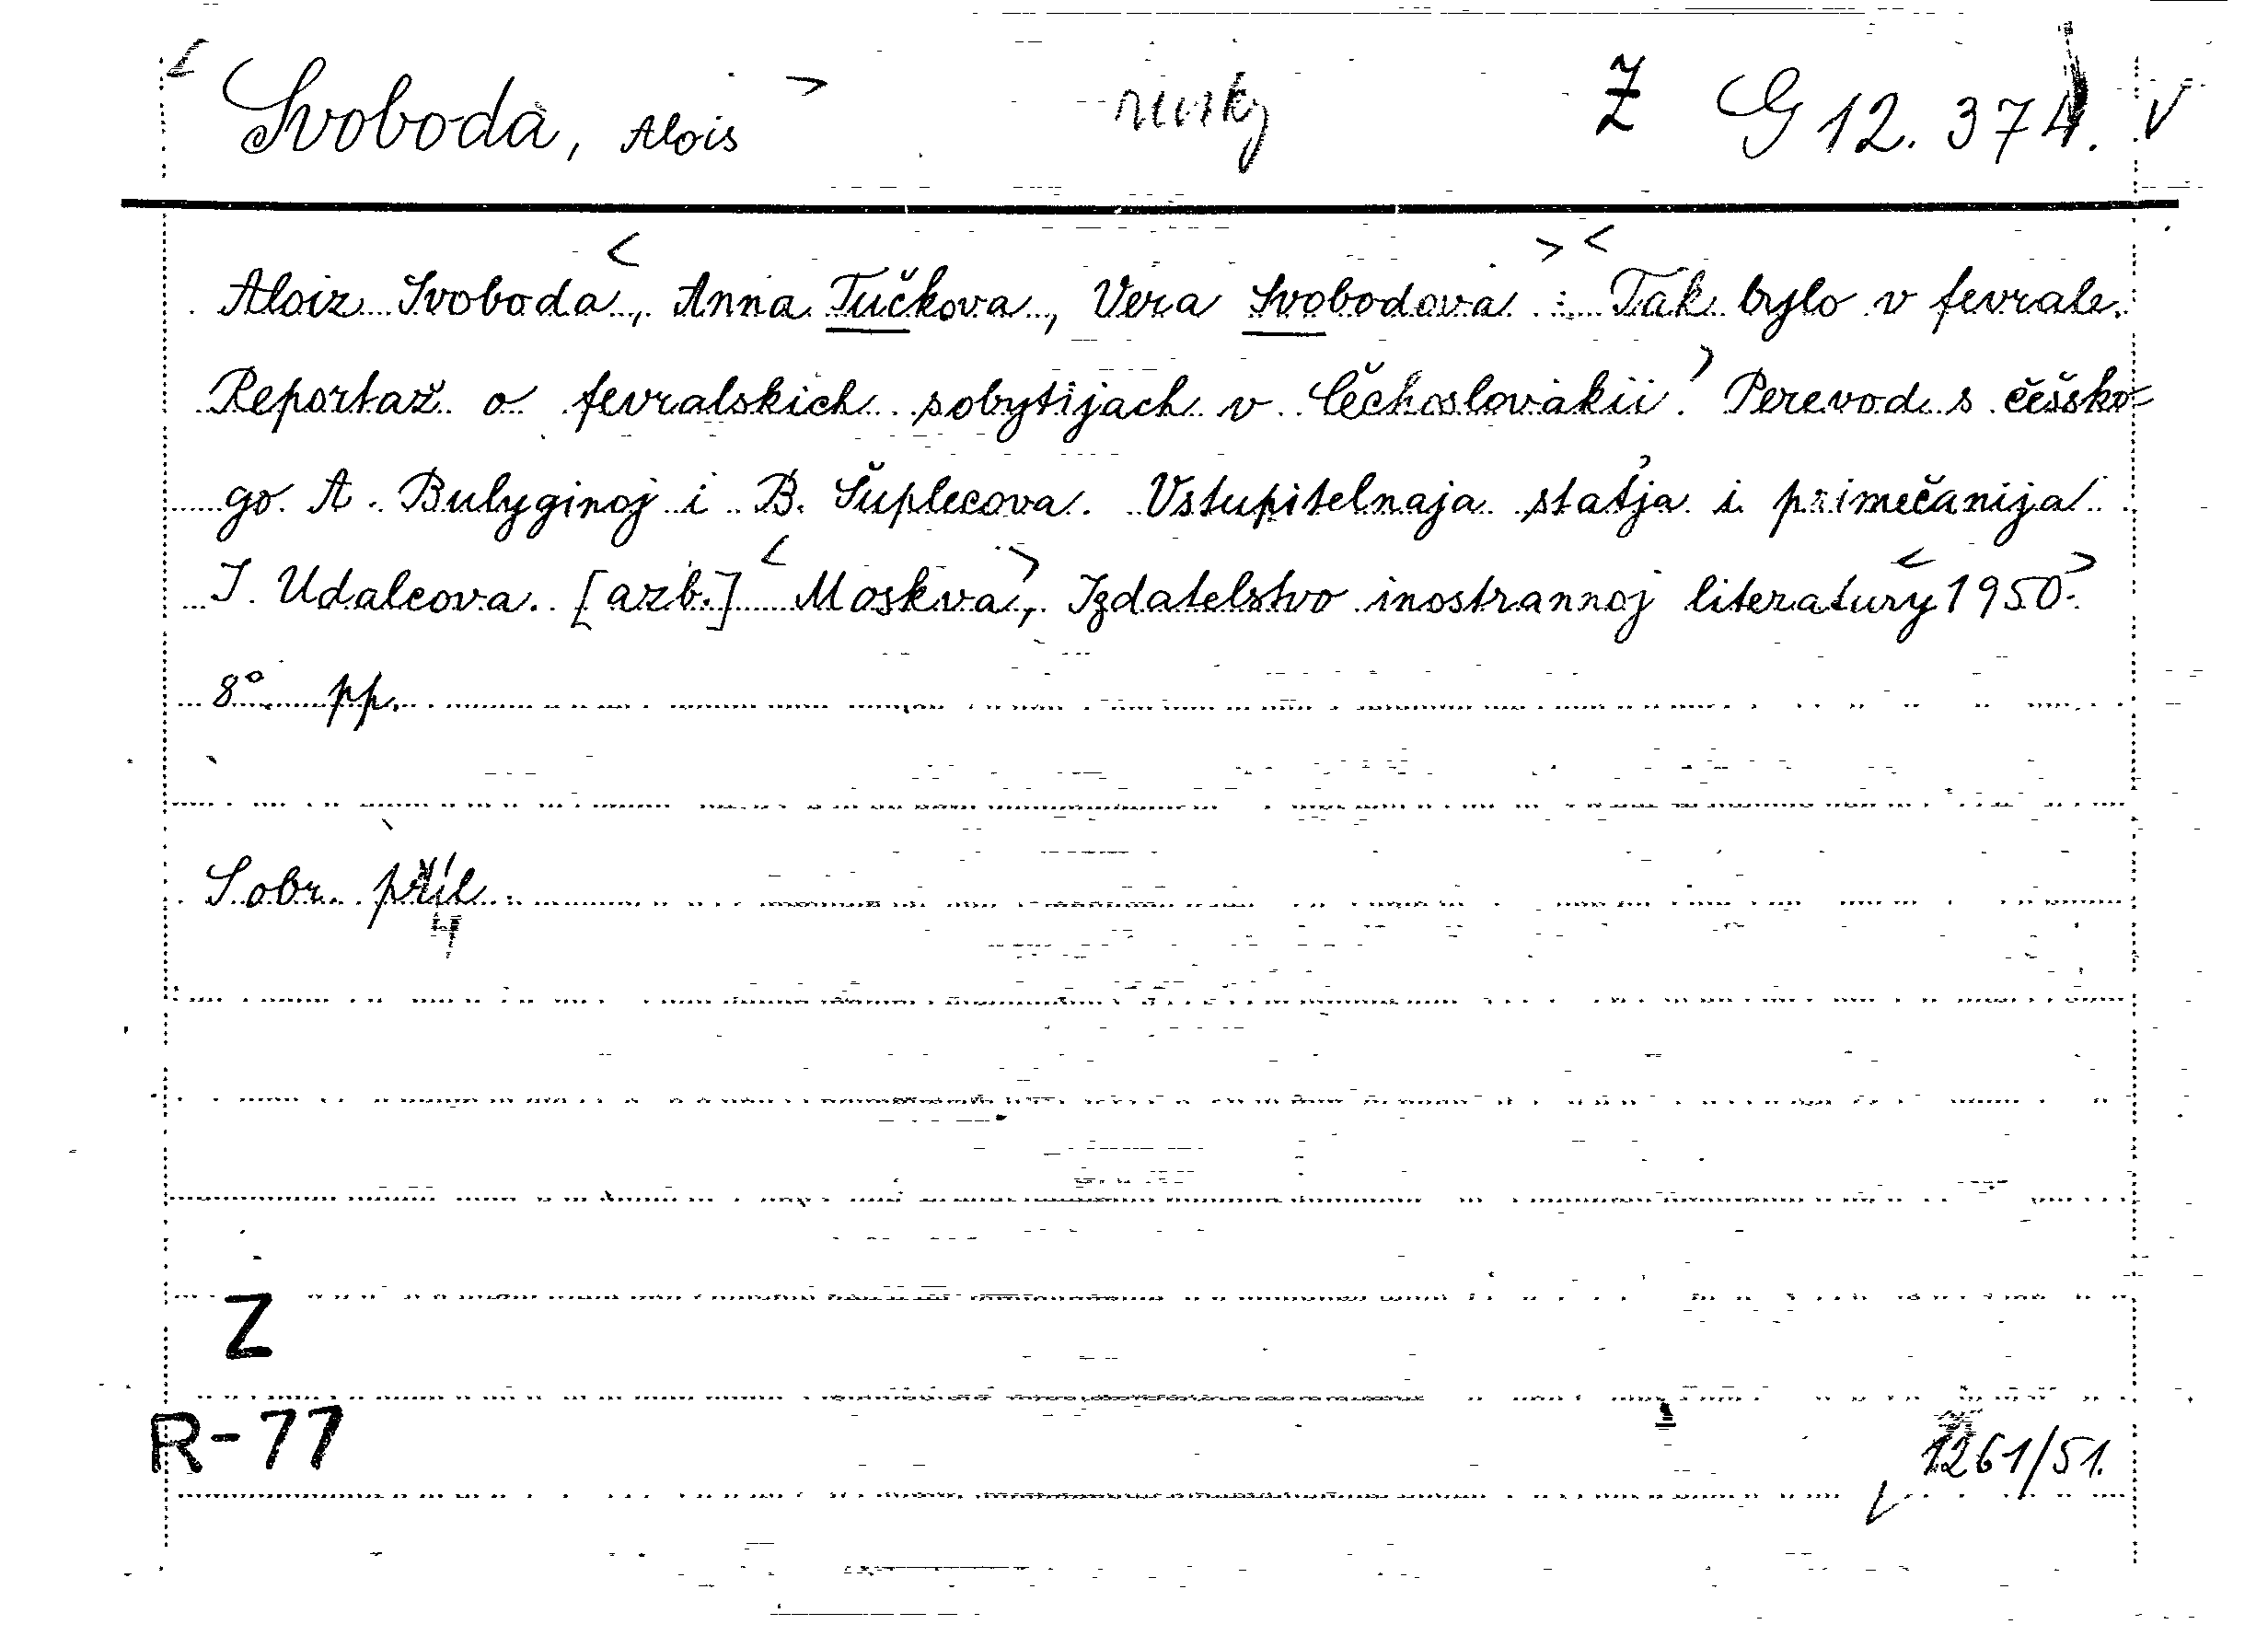 Svoboda, Alois rusky Z G 12.374. V
Aloiz Svoboda, Anna Tučkova, Vera Svobodova : Tak bylo v fevrale.
Reportaž o fevralskich sobytijach v Čechoslovakii. Perevod s češsko-
go A. Bulyginoj i B. Šuplecova. Vstupitelnaja statja i primečanija
I. Udalcova. [azb.] Moskva, Izdatelstvo inostrannoj literatury 1950.
8° pp.
S obr. příl.
Z
R-77
1261/51.